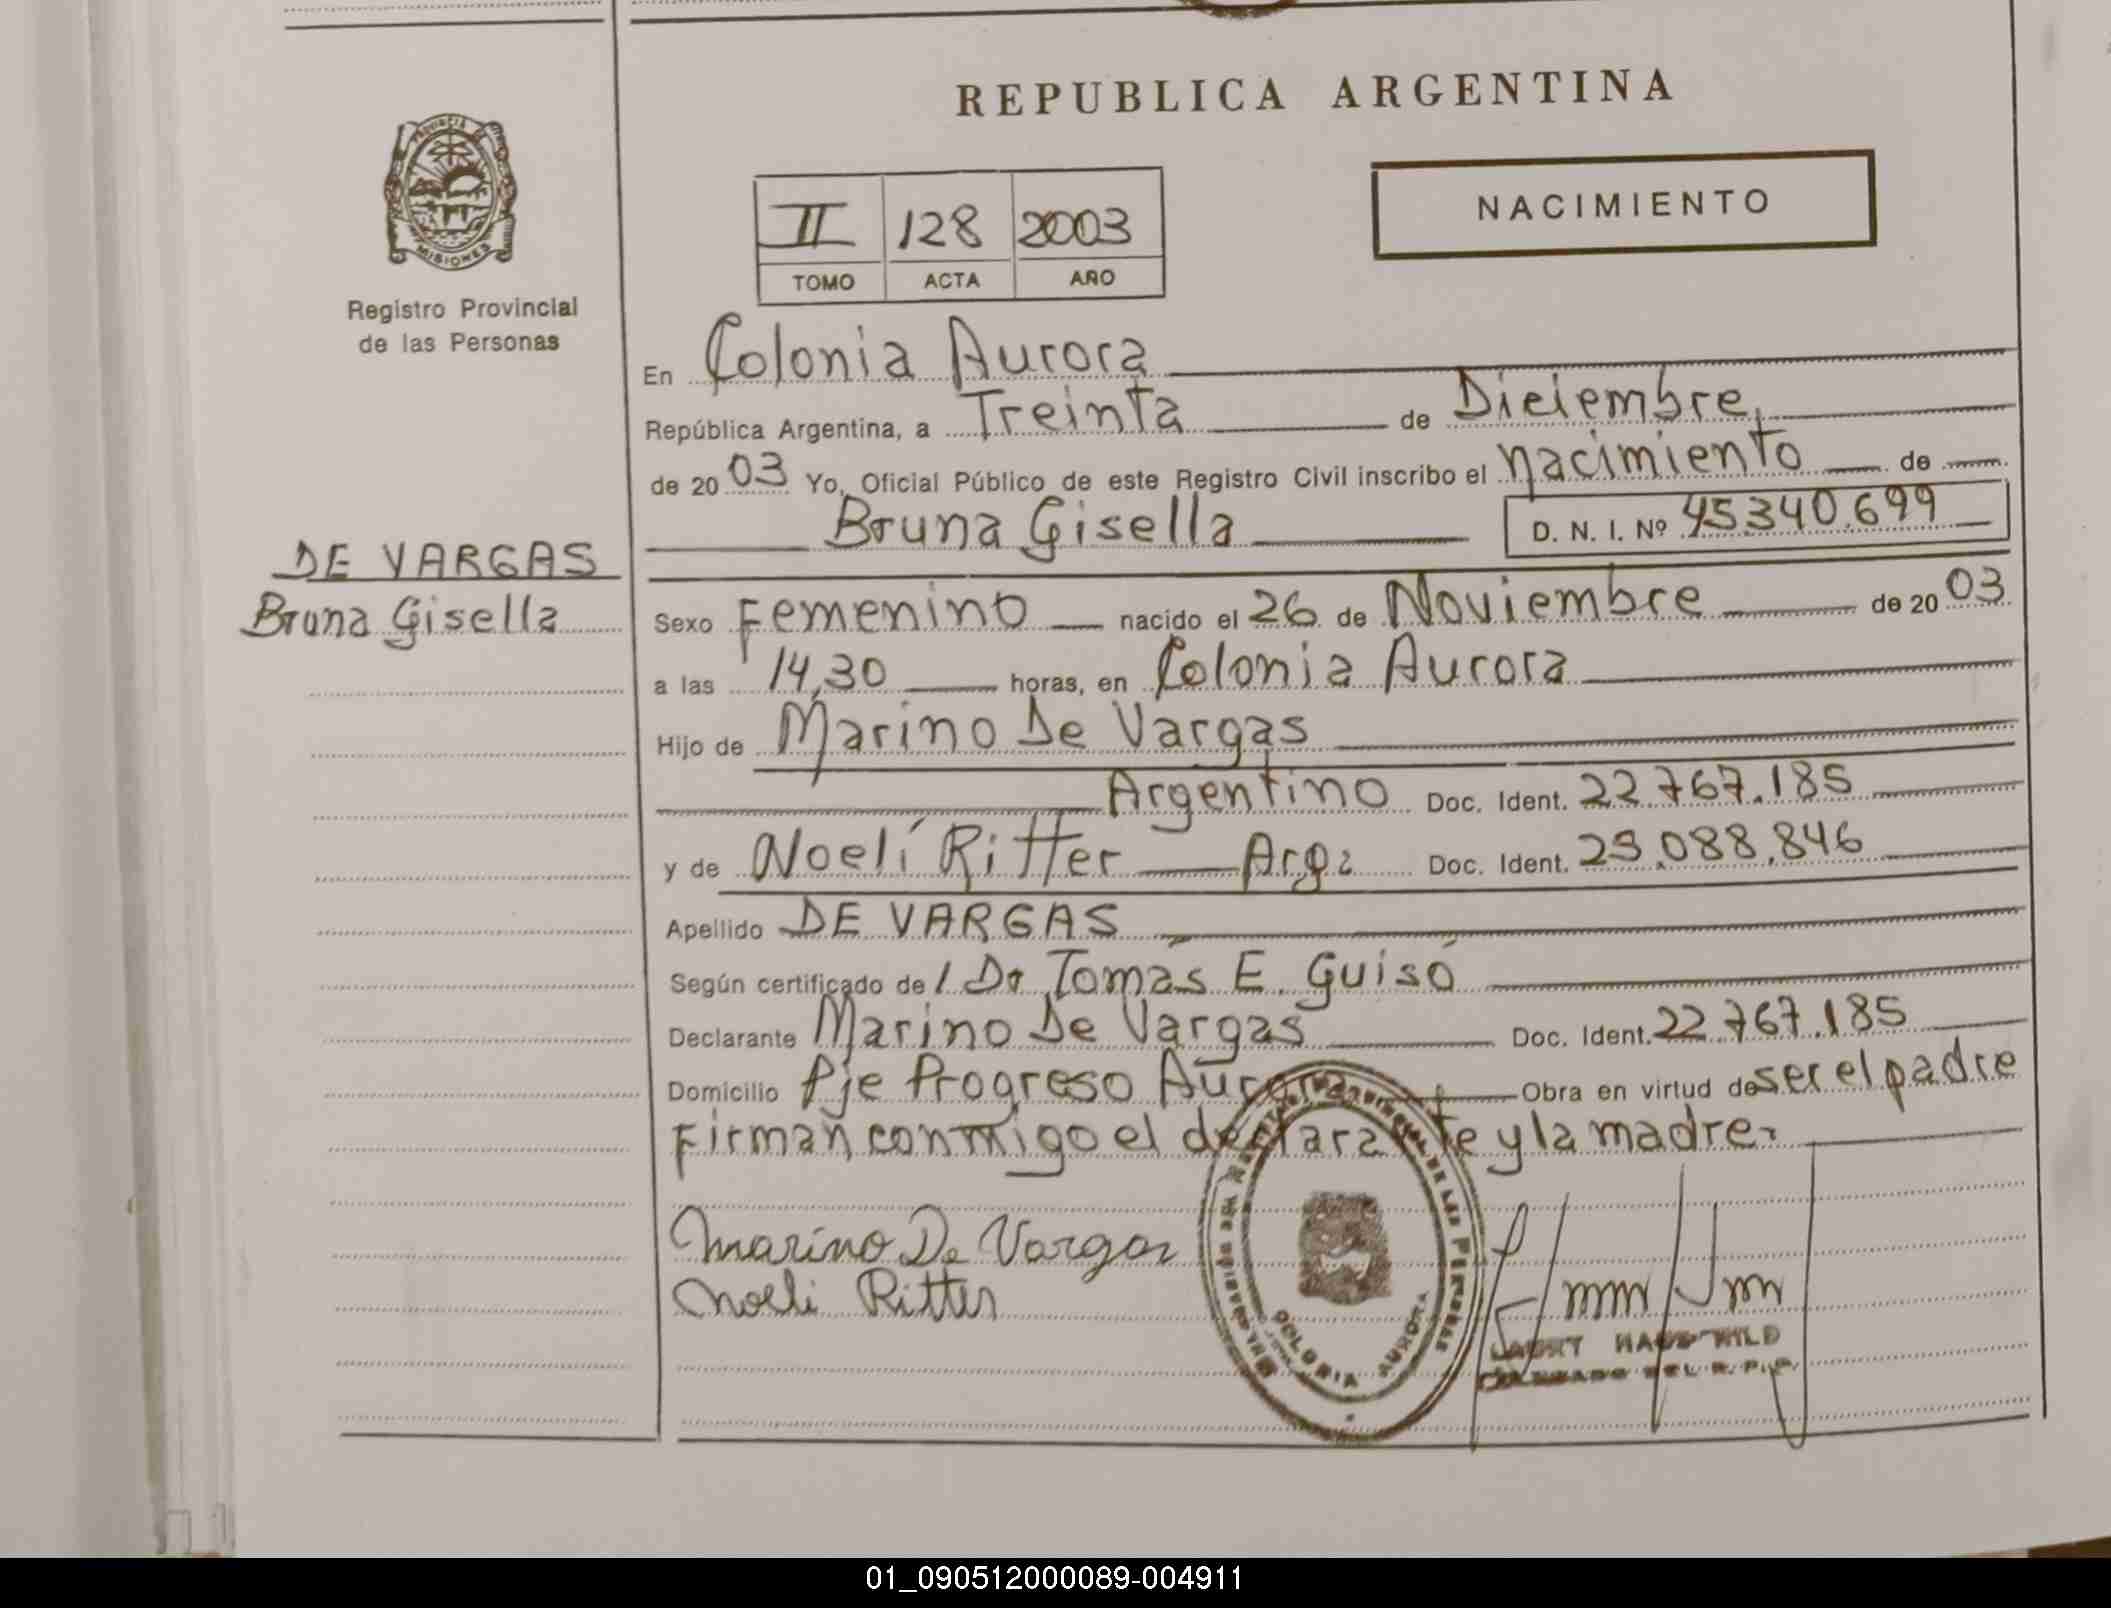 REPUBLICA ARGENTINA
PROVINCIA DE
MISIONES
Registro Provincial
de las Personas
II 128 2003
TOMO ACTA AÑO
NACIMIENTO
En Colonia Aurora
República Argentina, a Treinta de Diciembre,
de 2003 Yo, Oficial Público de este Registro Civil inscribo el nacimiento de
Bruna Gisella D. N. I. Nº 45.340.699
DE VARGAS
Bruna Gisella
Sexo Femenino nacido el 26 de Noviembre de 2003
a las 14,30 horas, en Colonia Aurora
Hijo de Marino De Vargas
Argentino Doc. Ident. 22.767.185
y de Noelí Ritter Arg. Doc. Ident. 29.088.846
Apellido DE VARGAS
Según certificado de / Dr Tomás E. Guisó
Declarante Marino De Vargas Doc. Ident. 22.767.185
Domicilio Pje Progreso Aurora Obra en virtud de ser el padre
Firman conmigo el declarante y la madre
Marino De Vargas
Noeli Ritter
COLONIA AURORA
DEL R. P. P.
01_090512000089-004911